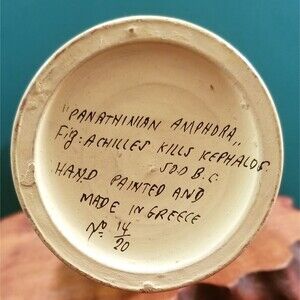 "PANATHINIAN AMPHORA,,
Fig: ACHILLES KILLS KEPHALOS
500 B.C.
HAND PAINTED AND
MADE IN GREECE
No 14/20